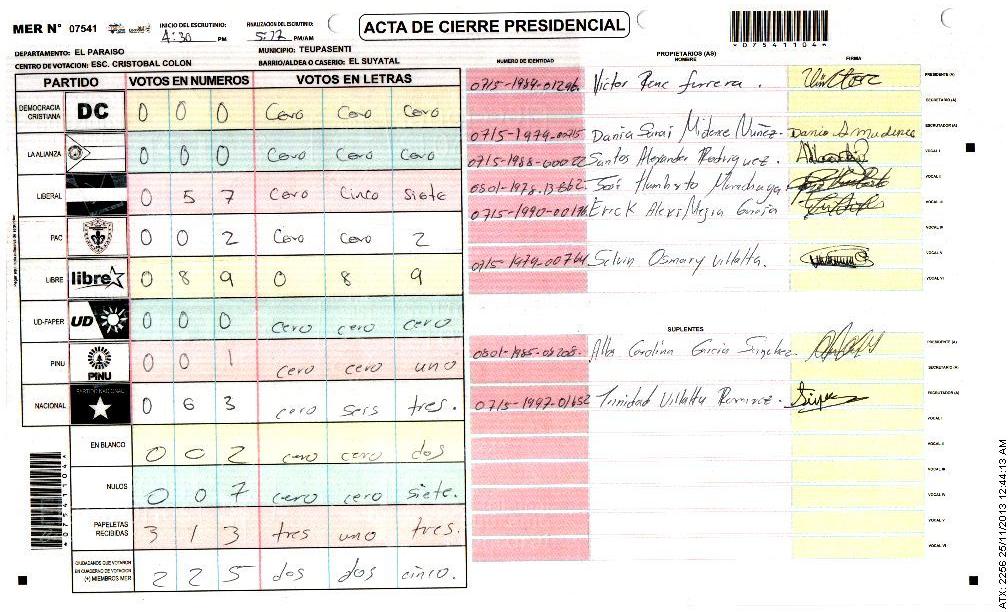 MER N° 07541 INICIO DEL ESCRUTINIO: 4:30 PM FINALIZACION DEL ESCRUTINIO: PM/AM
ACTA DE CIERRE PRESIDENCIAL
*07541104*
DEPARTAMENTO: EL PARAISO MUNICIPIO: TEUPASENTI
CENTRO DE VOTACION: ESC. CRISTOBAL COLON BARRIO/ALDEA O CASERIO: EL SUYATAL
PARTIDO VOTOS EN NUMEROS VOTOS EN LETRAS
DEMOCRACIA CRISTIANA DC 0 0 0 Cero Cero Cero
LA ALIANZA 0 0 0 Cero Cero Cero
LIBERAL 0 5 7 Cero Cinco siete
PAC 0 0 2 Cero Cero 2
LIBRE libre 0 8 9 0 8 9
UD-FAPER UD 0 0 0 cero cero cero
PINU PINU 0 0 1 cero cero uno
NACIONAL PARTIDO NACIONAL 0 6 3 cero seis tres.
EN BLANCO 0 0 2 cero cero dos
NULOS 0 0 7 cero cero siete.
PAPELETAS RECIBIDAS 3 1 3 tres uno tres.
CIUDADANOS QUE VOTARON EN CUADERNO DE VOTACION (+) MIEMBROS MER 2 2 5 dos dos cinco.
*07541104*
PROPIETARIOS (AS)
NUMERO DE IDENTIDAD NOMBRE FIRMA
0715-1984-01296 Victor Rene PRESIDENTE (A)
SECRETARIO (A)
0715-1979-00715 Dania Sarai Nuñez. ESCRUTADOR (A)
Santos Alexander Rodriguez. VOCAL I
José Humberto VOCAL II
0715-1990-00176 Erick Alexi Mejia Garcia VOCAL III
VOCAL IV
Selvin Osmary Villalta. VOCAL V
VOCAL VI
SUPLENTES
Alba Carolina Garcia PRESIDENTE (A)
SECRETARIO (A)
0715-1997-01652 Trinidad Villalta Ramirez. ESCRUTADOR (A)
VOCAL I
VOCAL II
VOCAL III
VOCAL IV
VOCAL V
VOCAL VI
ATX: 2256 25/11/2013 12:44:13 AM